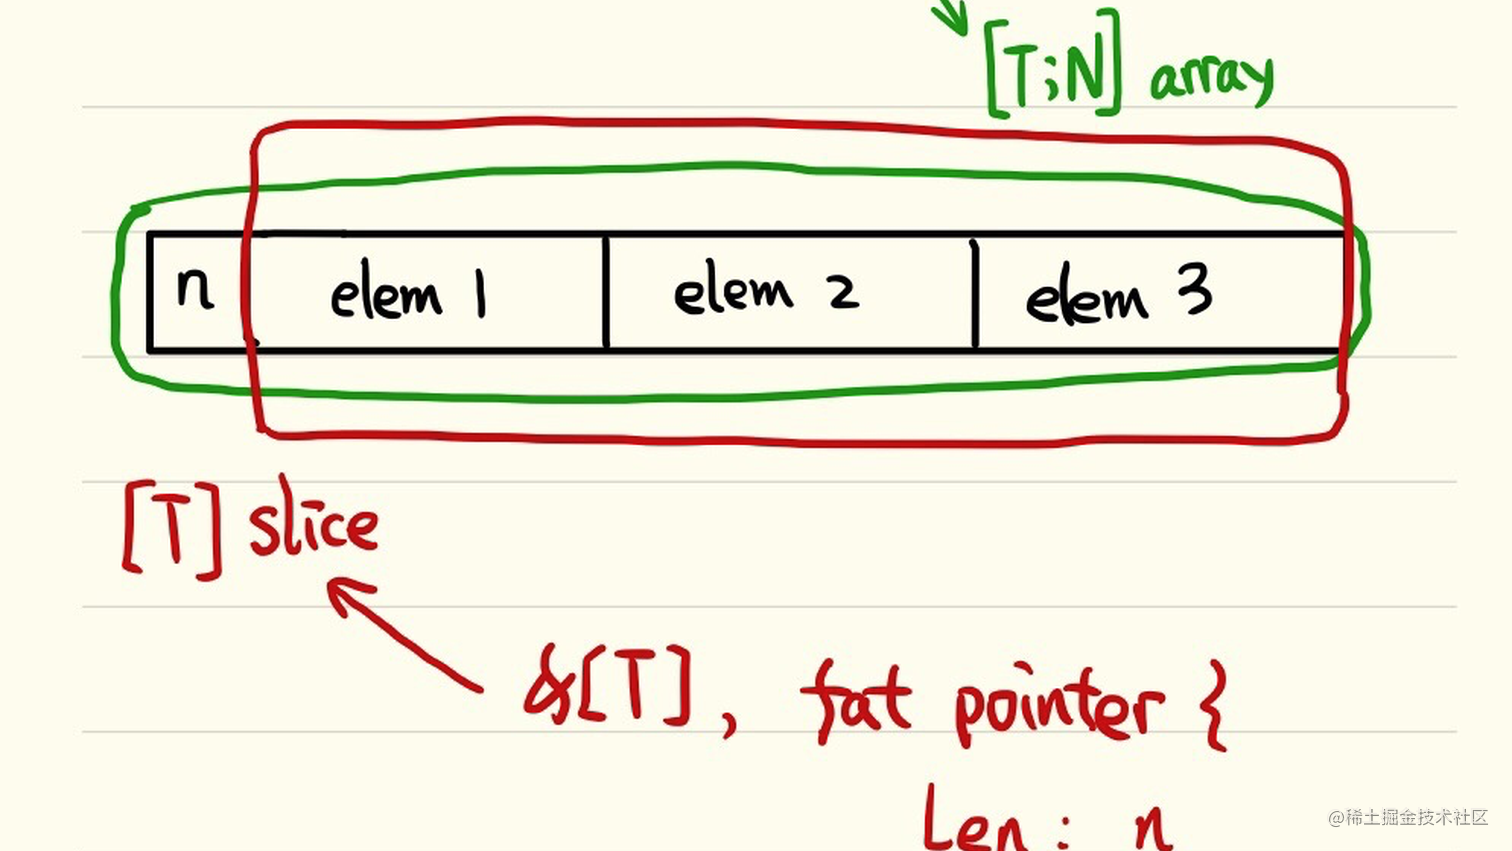 [T;N] array
n elem 1 elem 2 elem 3
[T] slice
&[T], fat pointer {
Len: n
@稀土掘金技术社区